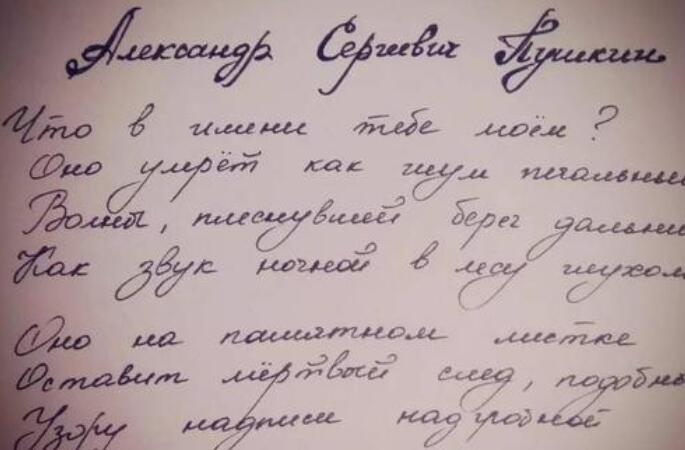 Александр Сергеевич Пушкин
Что в имени тебе моём?
Оно умрёт как шум печальный
Волны, плеснувшей берег дальни
Как звук ночной в лесу глухом
Оно на памятном листке
Оставит мёртвый след, подобны
Узору надписи надгробной